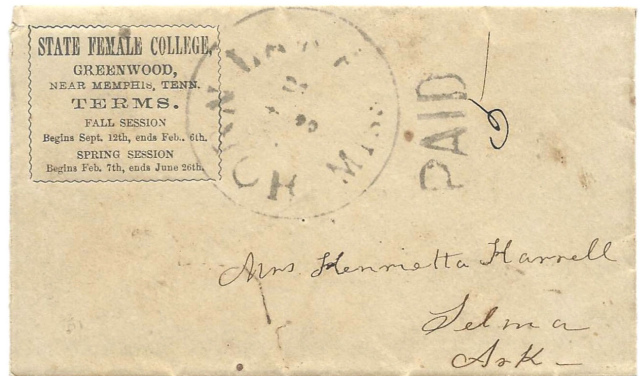 STATE FEMALE COLLEGE,
GREENWOOD,
NEAR MEMPHIS, TENN.
TERMS.
FALL SESSION
Begins Sept. 12th, ends Feb.. 6th.
SPRING SESSION
Begins Feb. 7th, ends June 26th.
HORN LAKE
MISS
PAID
Mrs Henrietta Harrell
Selma
Ark